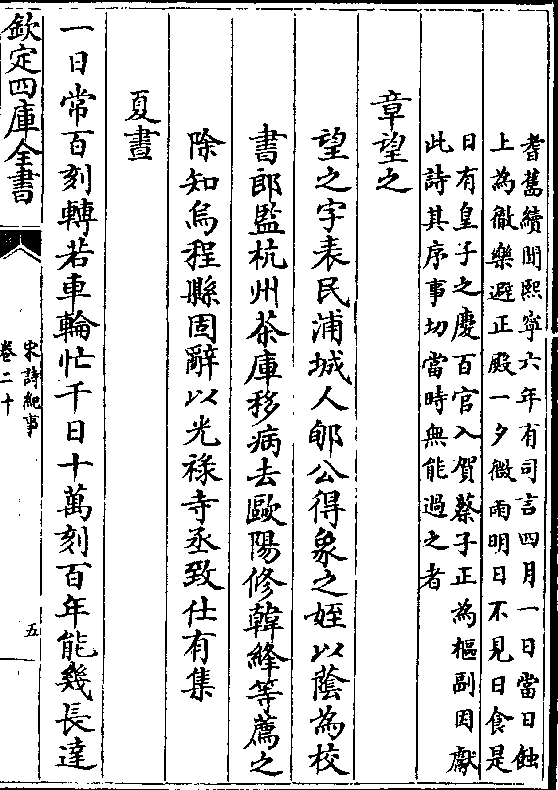 耆舊續聞熙寧六年有司言四月一日當日蝕
上為徹樂避正殿一夕微雨明日不見日食是
日有皇子之慶百官入賀蔡子正為樞副因獻
此詩其序事切當時無能過之者
章望之
望之字表民浦城人郇公得象之姪以蔭為校
書郎監杭州茶庫移病去歐陽修韓絳等薦之
除知烏程縣固辭以光祿寺丞致仕有集
夏晝
一日常百刻轉若車輪忙千日十萬刻百年能幾長達
欽定四庫全書
宋詩紀事
卷二十
五